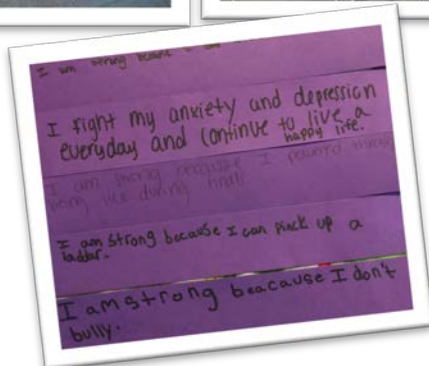 I am strong because I
I fight my anxiety and depression
everyday and continue to live a
happy life.
I am strong because I powered through
being sick during finals
I am strong because I can pick up a
laddar.
I am strong beacause I don't
bully.